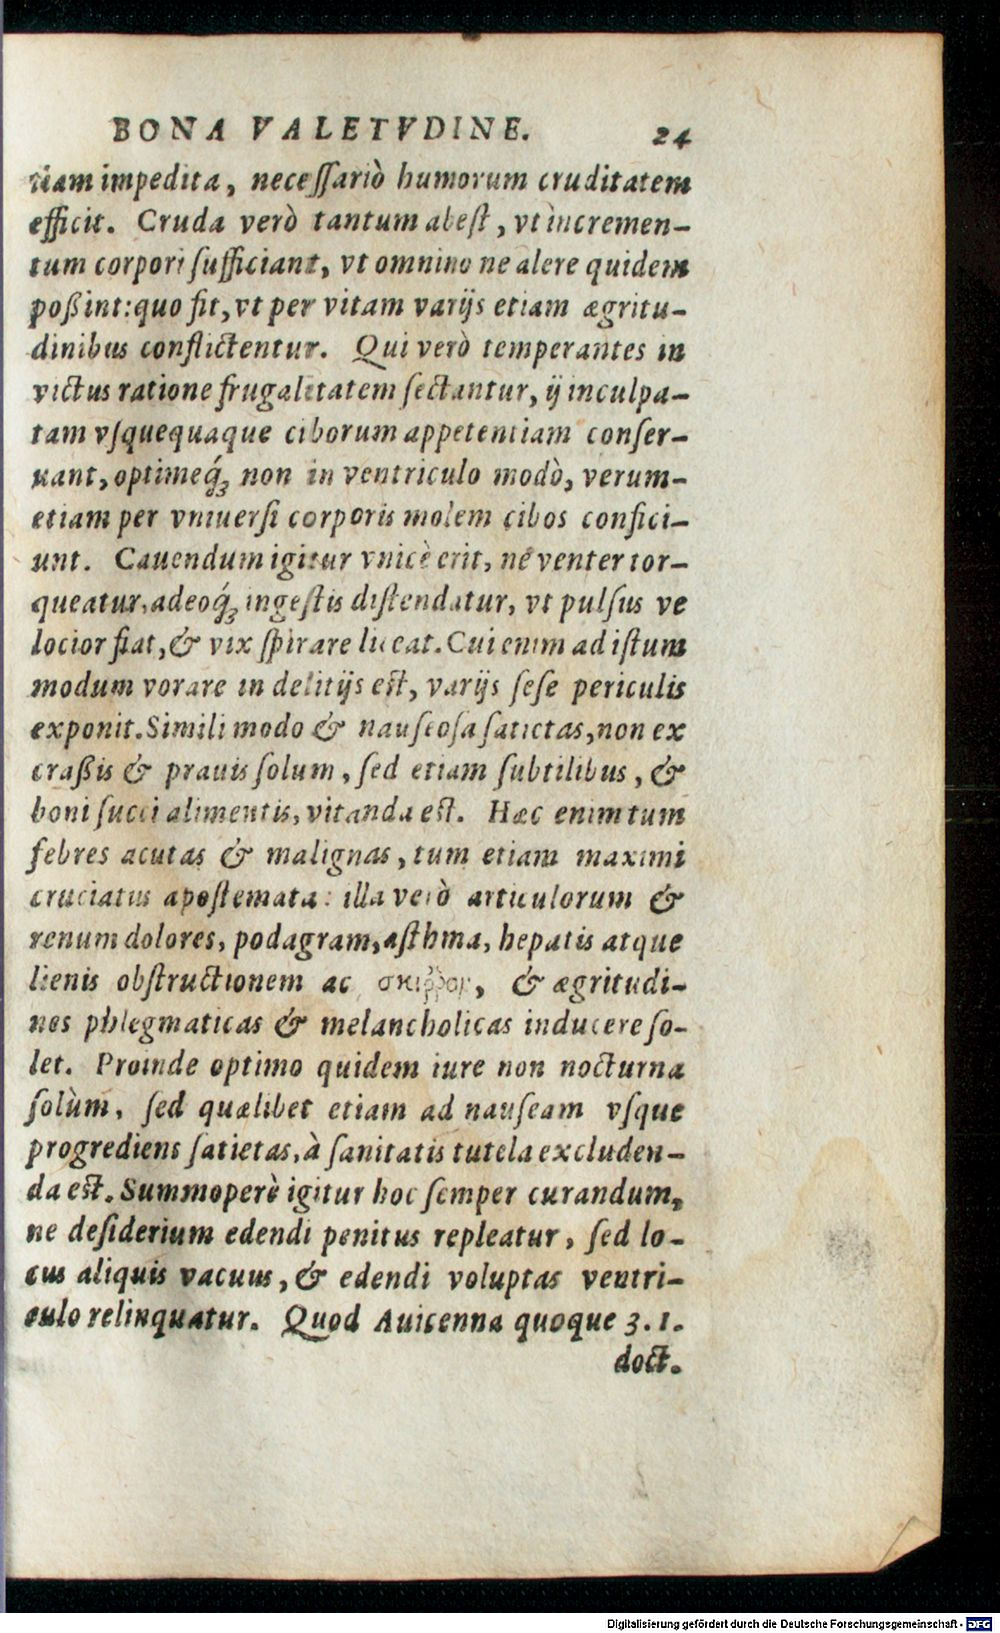 BONA VALETVDINE. 24
tiam impedita, neceſſariò humorum cruditatem
efficit. Cruda verò tantum abeſt, vt incremen-
tum corpori ſufficiant, vt omnino ne alere quidem
poßint: quo fit, vt per vitam varijs etiam ægritu-
dinibus conflictentur. Qui verò temperantes in
victus ratione frugalitatem ſectantur, ij inculpa-
tam vſquequaque ciborum appetentiam conſer-
uant, optimeq́ꝫ non in ventriculo modò, verum-
etiam per vniuerſi corporis molem cibos confici-
unt. Cauendum igitur vnicè erit, nè venter tor-
queatur, adeoq́ꝫ ingeſtis diſtendatur, vt pulſus ve
locior fiat, & vix ſpirare liceat. Cui enim ad iſtum
modum vorare in delitijs eſt, varijs ſeſe periculis
exponit. Simili modo & nauſeoſa ſatietas, non ex
craßis & prauis ſolum, ſed etiam ſubtilibus, &
boni ſucci alimentis, vitanda eſt. Hæc enim tum
febres acutas & malignas, tum etiam maximi
cruciatus apoſtemata: illa verò articulorum &
renum dolores, podagram, aſthma, hepatis atque
lienis obſtructionem ac σκιῤῥον, & ægritudi-
nes phlegmaticas & melancholicas inducere ſo-
let. Proinde optimo quidem iure non nocturna
ſolùm, ſed quælibet etiam ad nauſeam vſque
progrediens ſatietas, à ſanitatis tutela excluden-
da eſt. Summoperè igitur hoc ſemper curandum,
ne deſiderium edendi penitus repleatur, ſed lo-
cus aliquis vacuus, & edendi voluptas ventri-
culo relinquatur. Quod Auicenna quoque 3. 1.
doct.
Digitalisierung gefördert durch die Deutsche Forschungsgemeinschaft - DFG